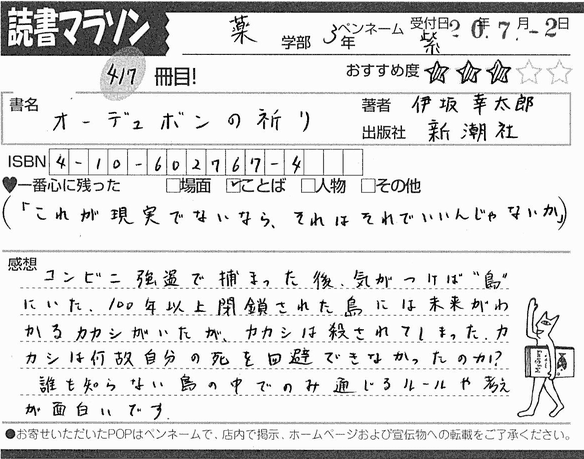 読書マラソン
薬 学部 3年 ペンネーム 紫 受付日 20年.7.月-2日
417 冊目!
おすすめ度 ★★★☆☆
書名 オーデュボンの祈り
著者 伊坂幸太郎
出版社 新潮社
ISBN 4-10-602767-4
♥一番心に残った □場面 ☑ことば □人物 □その他
(「これが現実でないなら、それはそれでいいんじゃないか」)
感想
コンビニ強盗で捕まった後、気がつけば"島"
にいた。100年以上閉鎖された島には未来がわ
かるカカシがいたが、カカシは殺されてしまった。カ
カシは何故自分の死を回避できなかったのか?
誰も知らない島の中でのみ通じるルールや考え
が面白いです。
●お寄せいただいたPOPはペンネームで、店内で掲示、ホームページおよび宣伝物への転載をご了承ください。